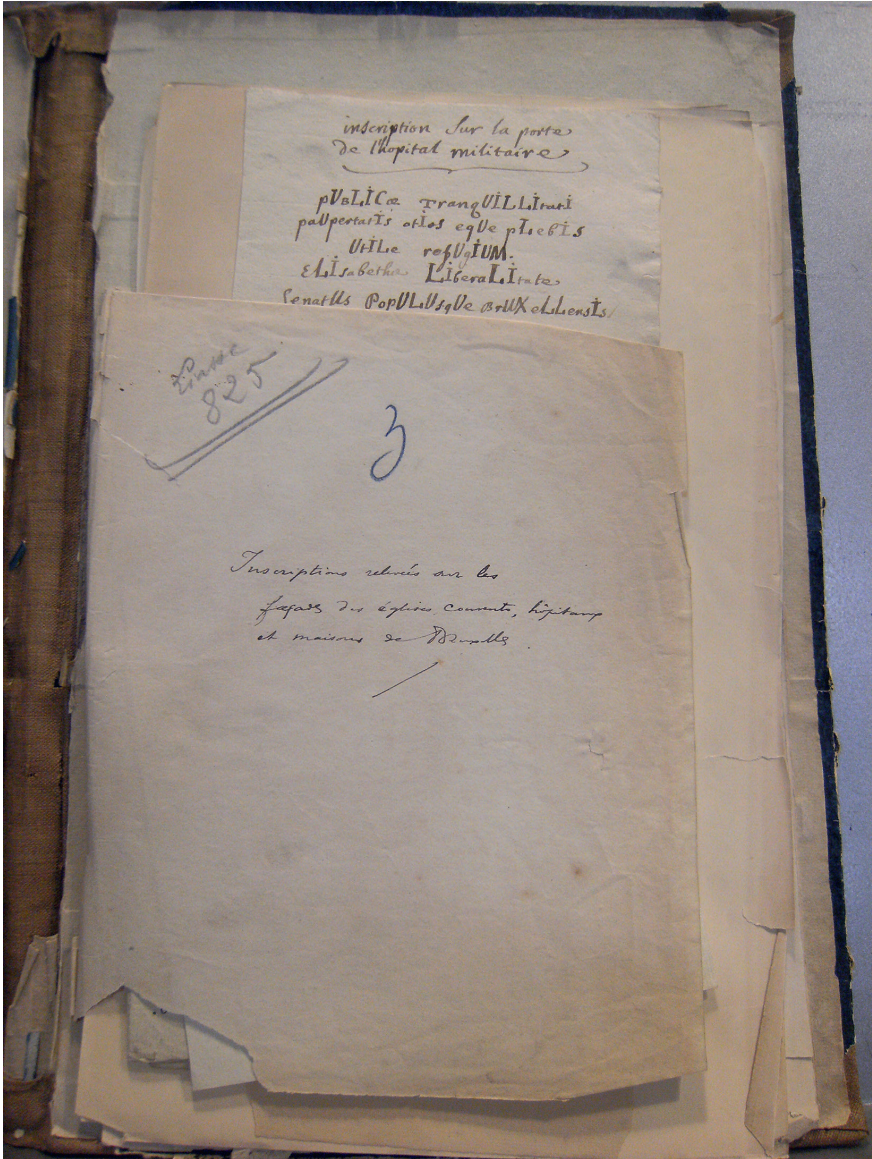 inscription sur la porte
de l'hopital militaire
pUBLICæ TranqUILLItati
paUpertatIs otIos eqUe pLebIs
UtILe refUgIUM.
ELIsabetha LIberaLItate
SenatUs PopULUsqUe BrUXeLLensIs
825
3
Inscriptions relevées sur les
façades des églises couvents, hôpitaux
et maisons de Bruxelles.